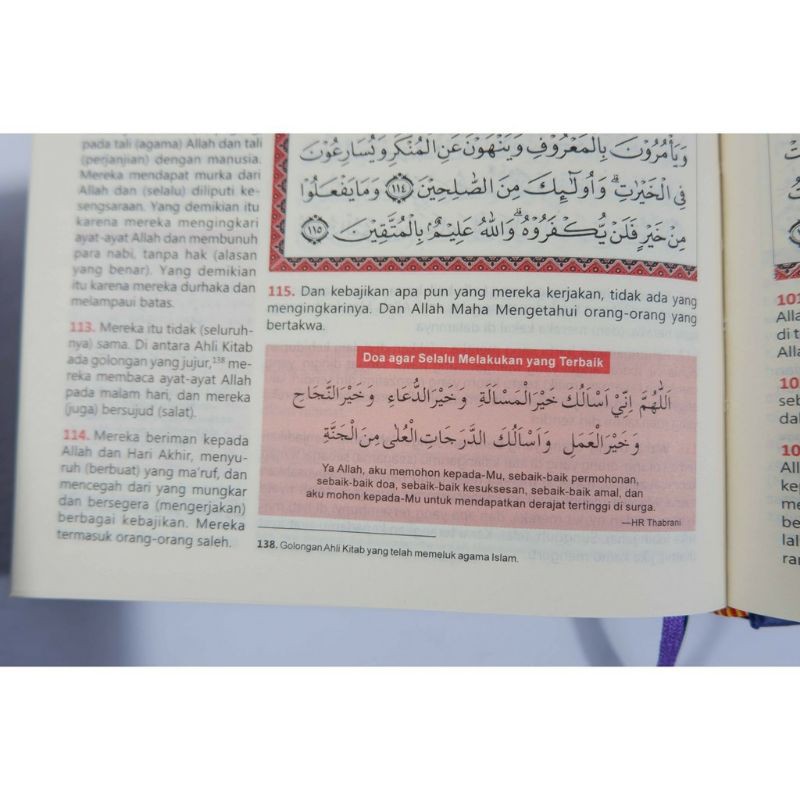 pada tali (agama) Allah dan tali
(perjanjian) dengan manusia.
Mereka mendapat murka dari
Allah dan (selalu) diliputi ke-
sengsaraan. Yang demikian itu
karena mereka mengingkari
ayat-ayat Allah dan membunuh
para nabi, tanpa hak (alasan
yang benar). Yang demikian
itu karena mereka durhaka dan
melampaui batas.
113. Mereka itu tidak (seluruh-
nya) sama. Di antara Ahli Kitab
ada golongan yang jujur,138 me-
reka membaca ayat-ayat Allah
pada malam hari, dan mereka
(juga) bersujud (salat).
114. Mereka beriman kepada
Allah dan Hari Akhir, menyu-
ruh (berbuat) yang ma'ruf, dan
mencegah dari yang mungkar
dan bersegera (mengerjakan)
berbagai kebajikan. Mereka
termasuk orang-orang saleh.
وَيَأْمُرُونَ بِالْمَعْرُوفِ وَيَنْهَوْنَ عَنِ الْمُنْكَرِ وَيُسَارِعُونَ
فِي الْخَيْرٰتِۗ وَاُولٰۤىِٕكَ مِنَ الصّٰلِحِيْنَ ١١٤ وَمَا يَفْعَلُوْا
مِنْ خَيْرٍ فَلَنْ يُّكْفَرُوْهُۗ وَاللّٰهُ عَلِيْمٌۢ بِالْمُتَّقِيْنَ ١١٥
115. Dan kebajikan apa pun yang mereka kerjakan, tidak ada yang
mengingkarinya. Dan Allah Maha Mengetahui orang-orang yang
bertakwa.
Doa agar Selalu Melakukan yang Terbaik
اَللّٰهُمَّ اِنِّيْ اَسْاَلُكَ خَيْرَ الْمَسْاَلَةِ وَخَيْرَ الدُّعَاءِ وَخَيْرَ النَّجَاحِ
وَخَيْرَ الْعَمَلِ وَاَسْاَلُكَ الدَّرَجَاتِ الْعُلٰى مِنَ الْجَنَّةِ
Ya Allah, aku memohon kepada-Mu, sebaik-baik permohonan,
sebaik-baik doa, sebaik-baik kesuksesan, sebaik-baik amal, dan
aku mohon kepada-Mu untuk mendapatkan derajat tertinggi di surga.
—HR Thabrani
138. Golongan Ahli Kitab yang telah memeluk agama Islam.